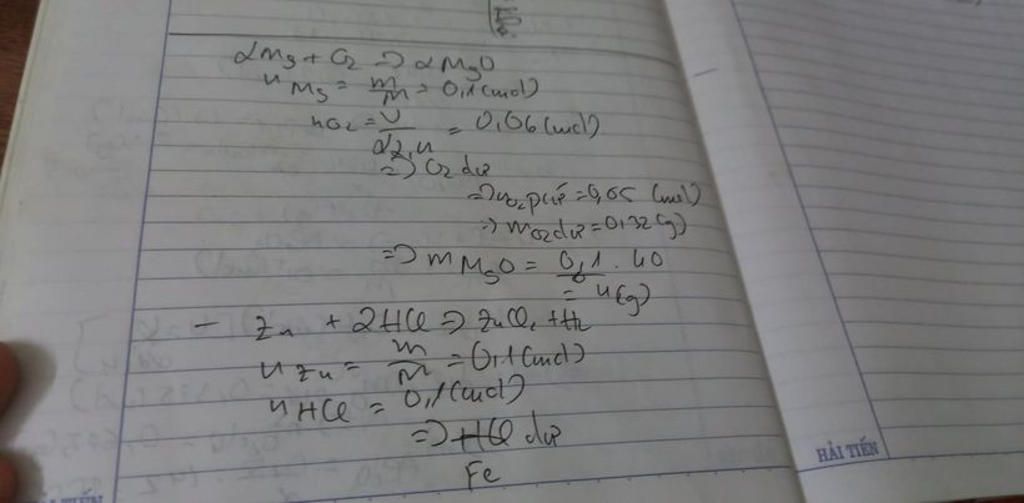 2Mg + O2 => 2MgO
nMg = m/M = 0,1 (mol)
nO2 = V/22,4 = 0,06 (mol)
=> O2 dư
=> nO2 pứ = 0,05 (mol)
=> mO2 dư = 0,32 (g)
=> mMgO = 0,1 . 40
= 4 (g)
- Zn + 2HCl => ZnCl2 + H2
nZn = m/M = 0,1 (mol)
nHCl = 0,1 (mol)
=> HCl dư
Fe
HẢI TIẾN